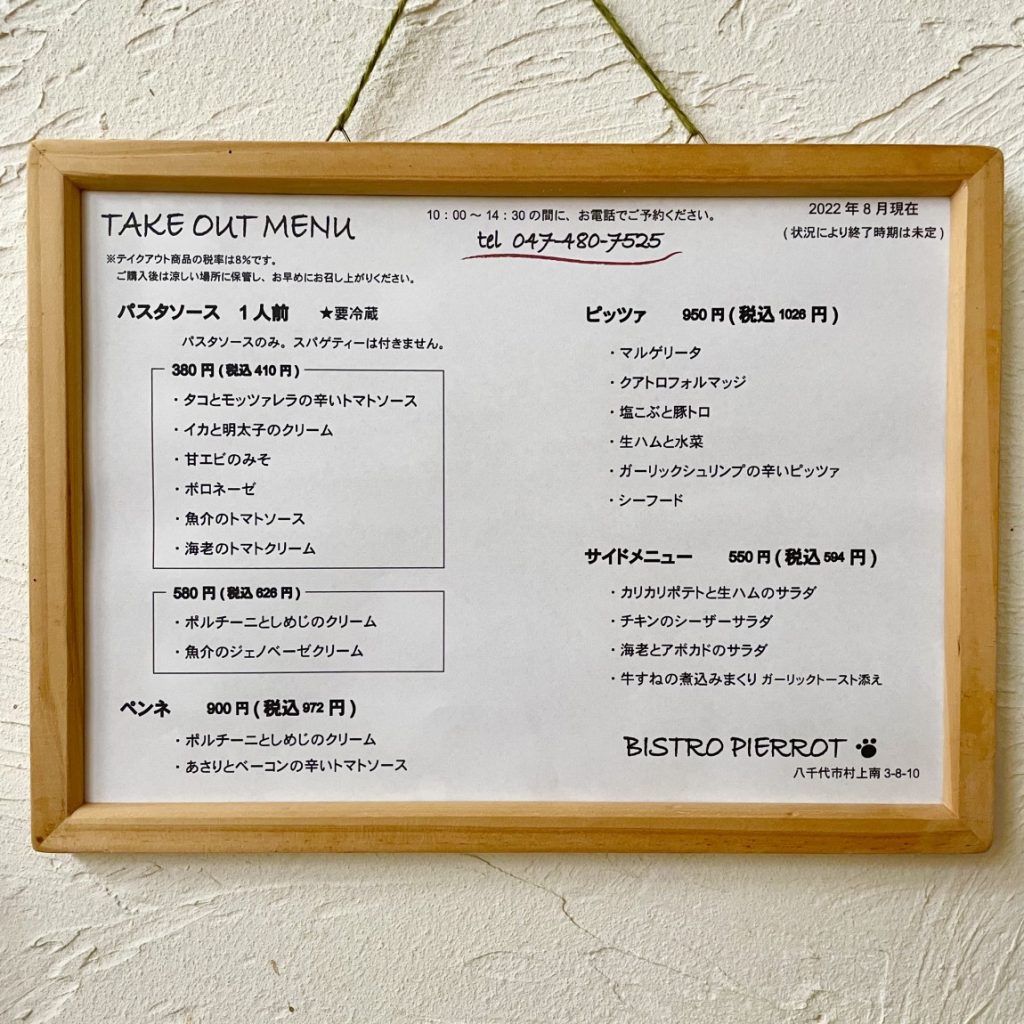 TAKE OUT MENU
10：00～14：30の間に、お電話でご予約ください。
tel 047-480-7525
2022年8月現在
(状況により終了時期は未定)
※テイクアウト商品の税率は8％です。
ご購入後は涼しい場所に保管し、お早めにお召し上がりください。
パスタソース 1人前 ★要冷蔵
パスタソースのみ。スパゲティーは付きません。
380円(税込410円)
・タコとモッツァレラの辛いトマトソース
・イカと明太子のクリーム
・甘エビのみそ
・ボロネーゼ
・魚介のトマトソース
・海老のトマトクリーム
580円(税込626円)
・ポルチーニとしめじのクリーム
・魚介のジェノベーゼクリーム
ペンネ 900円(税込972円)
・ポルチーニとしめじのクリーム
・あさりとベーコンの辛いトマトソース
ピッツァ 950円(税込1026円)
・マルゲリータ
・クアトロフォルマッジ
・塩こぶと豚トロ
・生ハムと水菜
・ガーリックシュリンプの辛いピッツァ
・シーフード
サイドメニュー 550円(税込594円)
・カリカリポテトと生ハムのサラダ
・チキンのシーザーサラダ
・海老とアボカドのサラダ
・牛すねの煮込みまくり ガーリックトースト添え
BISTRO PIERROT
八千代市村上南3-8-10